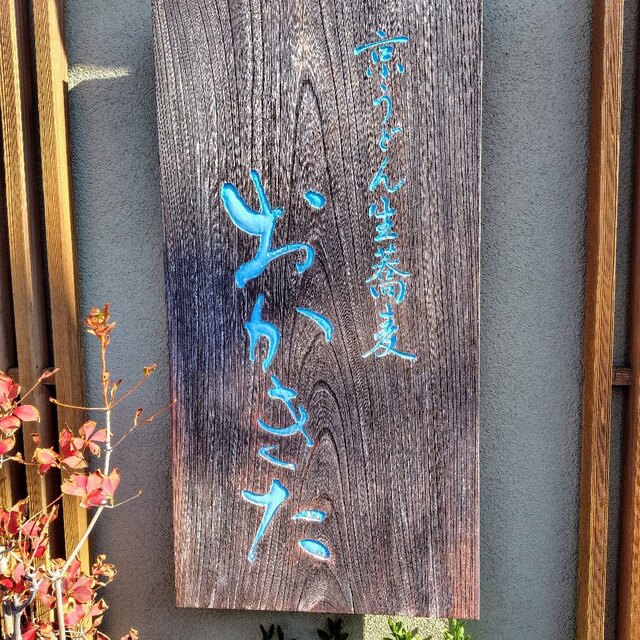 京うどん生蕎麦
おかきた